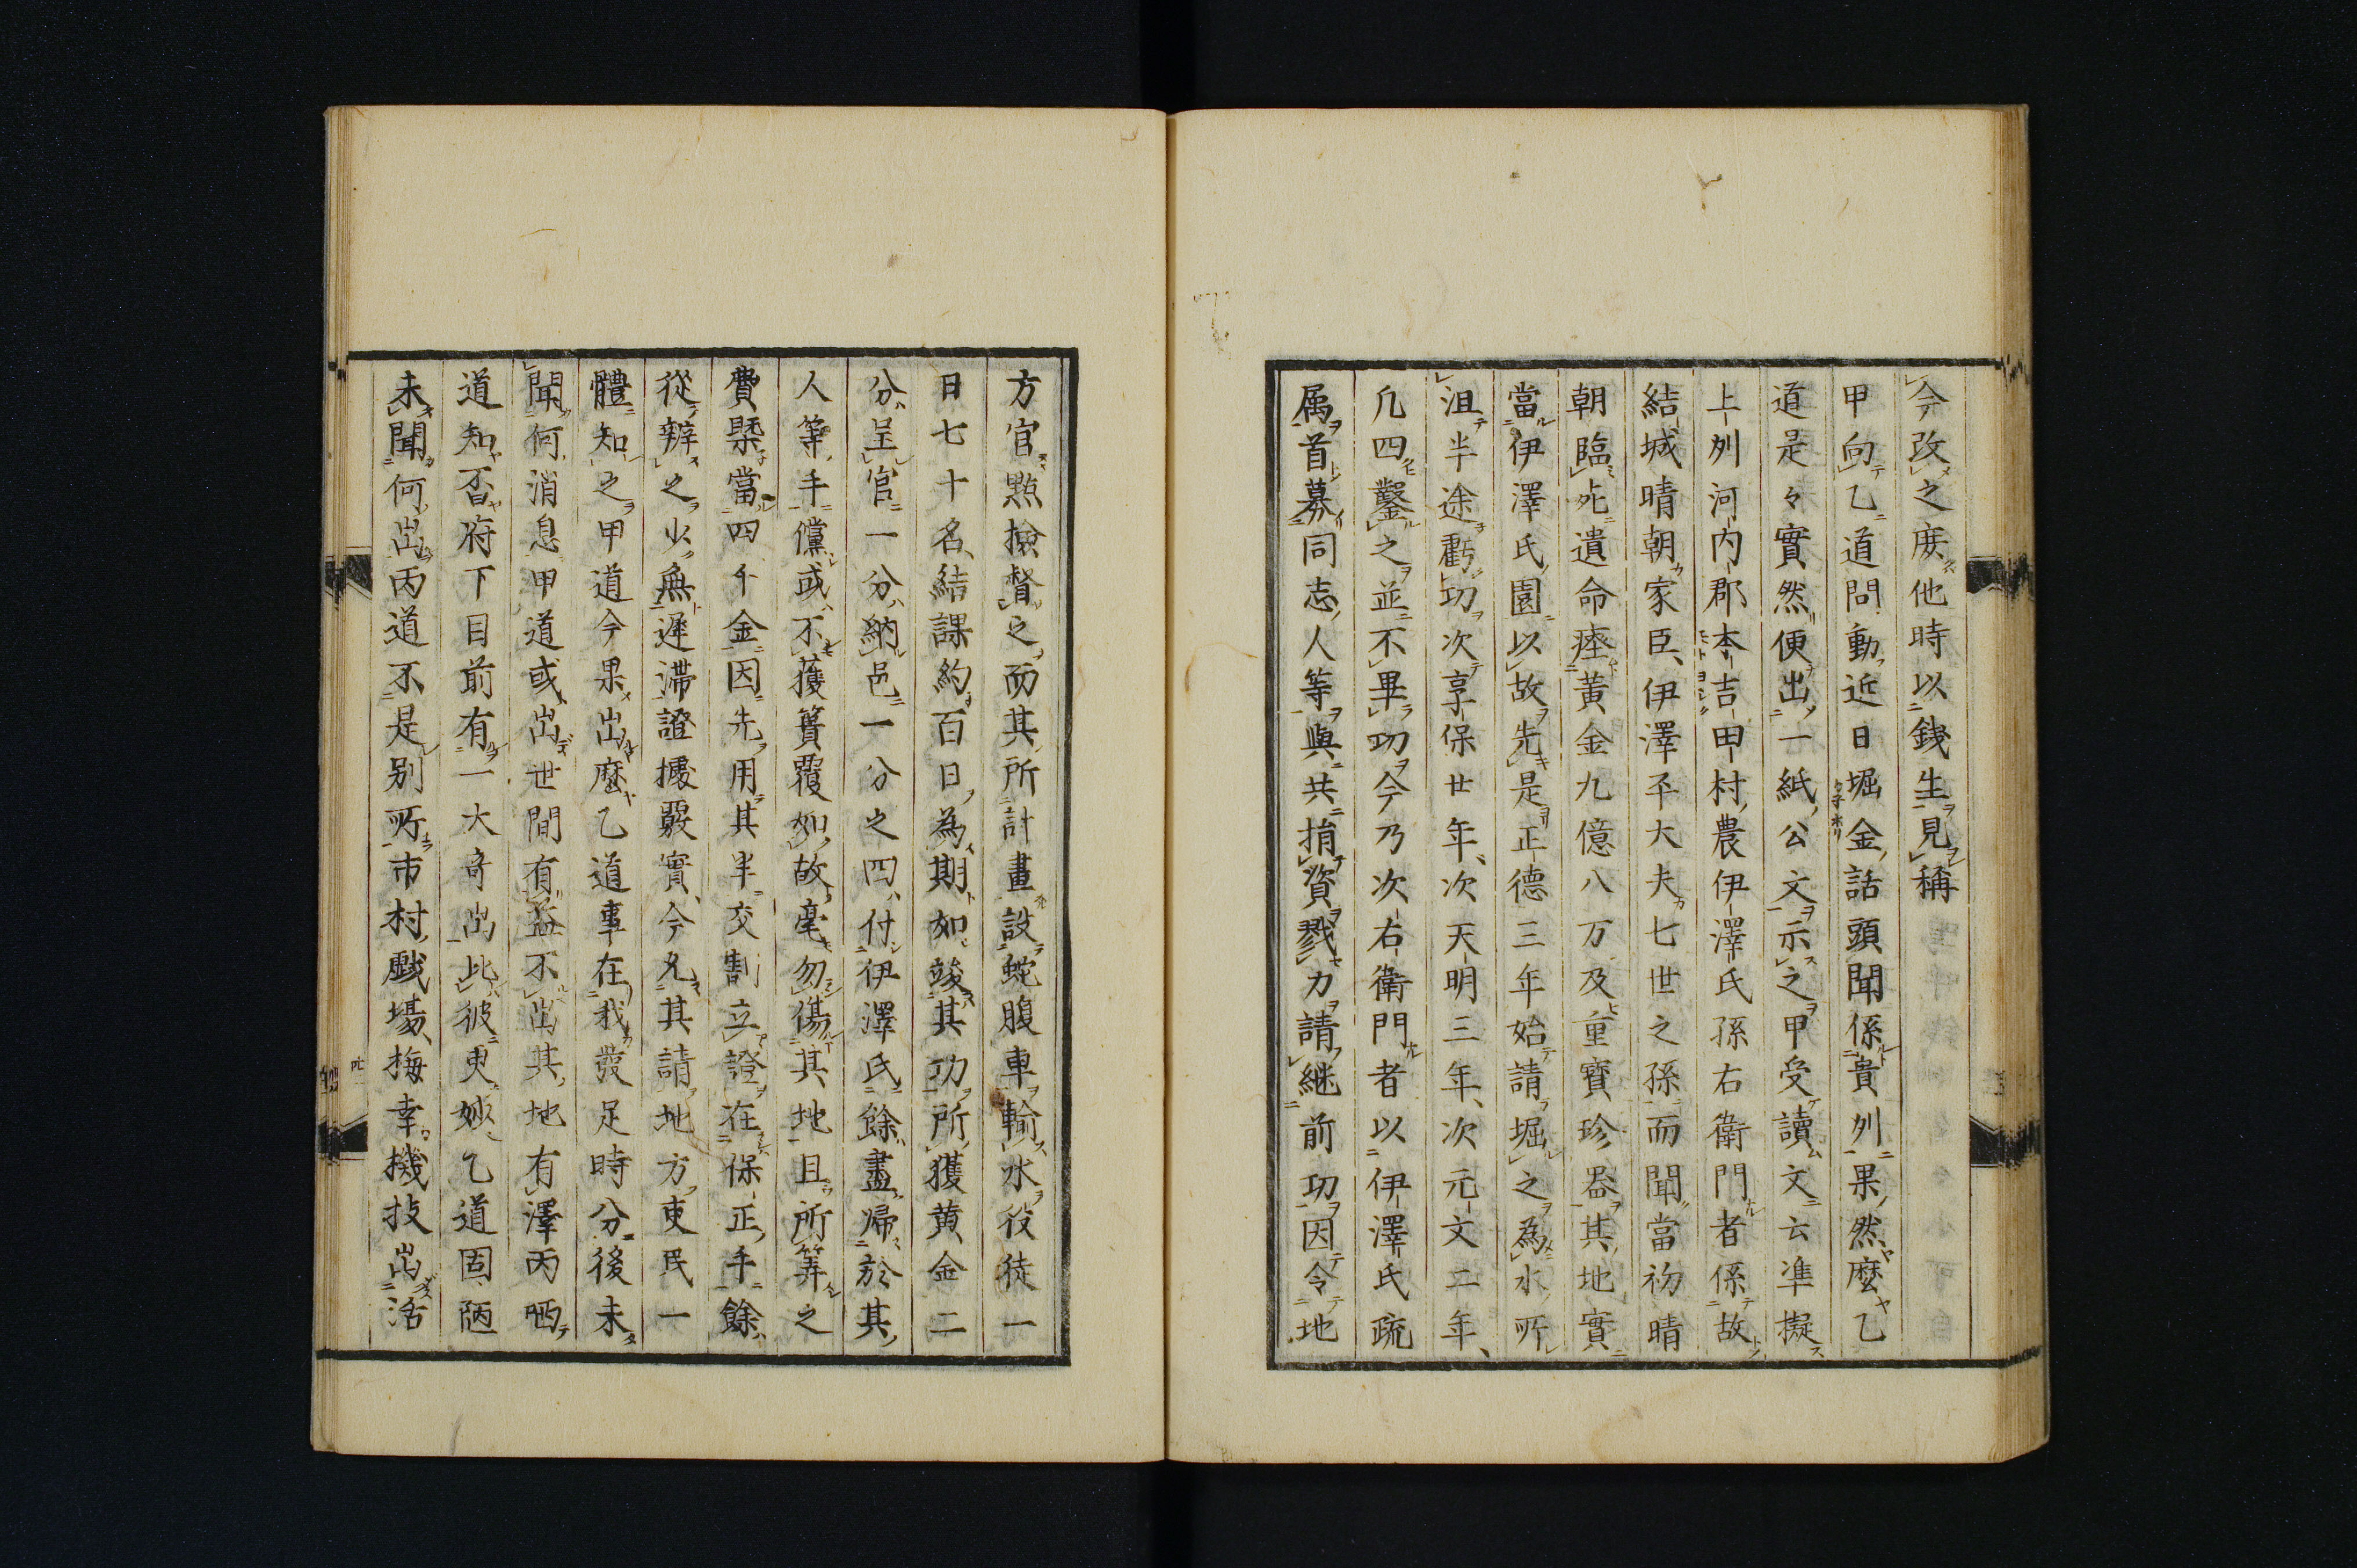 今改之庻他時以錢生見稱
甲向乙道問動近日堀金話頭聞係貴列果然麼乙
道是々實然便出一紙公文示之甲受讀文云準擬
上列河内郡本吉田村農伊澤氏孫右衛門者係故
結城晴朝家臣伊澤平大夫七世之孫而聞當初晴
朝臨死遺命瘞黄金九億八万及重寳珍器其地實
當伊澤氏園以故先是正德三年始請堀之為水所
沮半途虧功次享保廿年次天明三年次元文二年
凡四鑿之並不畢功今乃次右衛門者以伊澤氏疏
属首募同志人等與共捐資戮力請継前功因令地
方官點撿督之而其所計畫設蛇腹車輸水役徒一
日七十名結課約百日為期如竣其功所獲黄金二
分呈官一分納邑一分之四付伊澤氏餘盡歸於其
人等手儻或不獲簣覆如故毫勿傷其地且所筭之
費槩當四千金因先用其半交割立證在保正手餘
從辨之必無遲滞證據覈實今允其請地方吏民一
體知之甲道今果出麼乙道事在我發足時分後未
聞何消息甲道或出世間有益不出其地有澤丙哂
道知否府下目前有一大奇出比彼更妙乙道固陋
未聞何出丙道不是别所市村戯塲梅幸機技出活